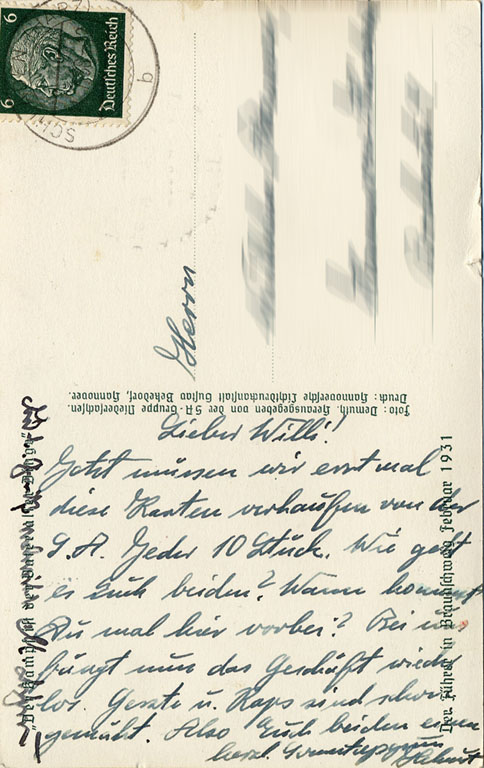 Deutsches Reich
6 6
Herrn
Foto: Demuth. Herausgegeben von der SA-Gruppe Niedersachsen.
Druck: Hannoversche Lichtdruckanstalt Gustav Bekedorf, Hannover.
Lieber Willi!
Jetzt müssen wir erst mal
diese Karten verkaufen von der
S.A. Jeder 10 Stück. Wie geht
es Euch beiden? Wann kommst
Du mal hier vorbei? Bei uns
fängt nun das Geschäft wieder
los. Gerste u. Raps sind schon
gemäht. Also Euch beiden einen
herzl.
Helmut
Der Führer in Braunschweig Februar 1931